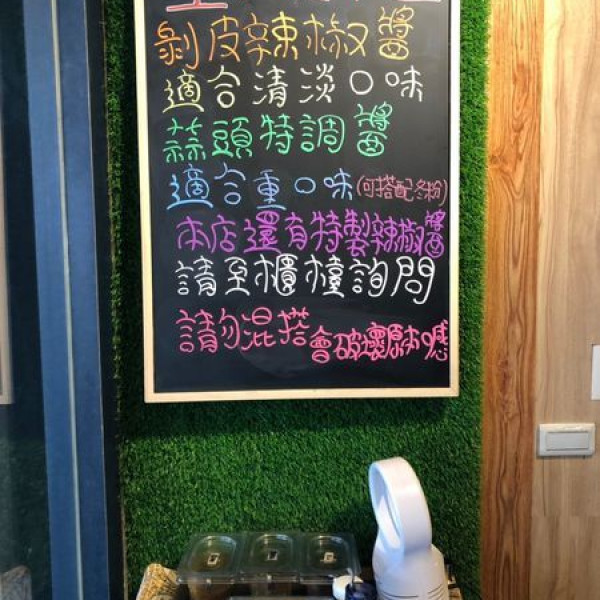 剝皮辣椒醬
適合清淡口味
蒜頭特調醬
適合重口味(可搭配冬粉)
本店還有特製辣椒醬
請至櫃檯詢問
請勿混搭會破壞原本口感